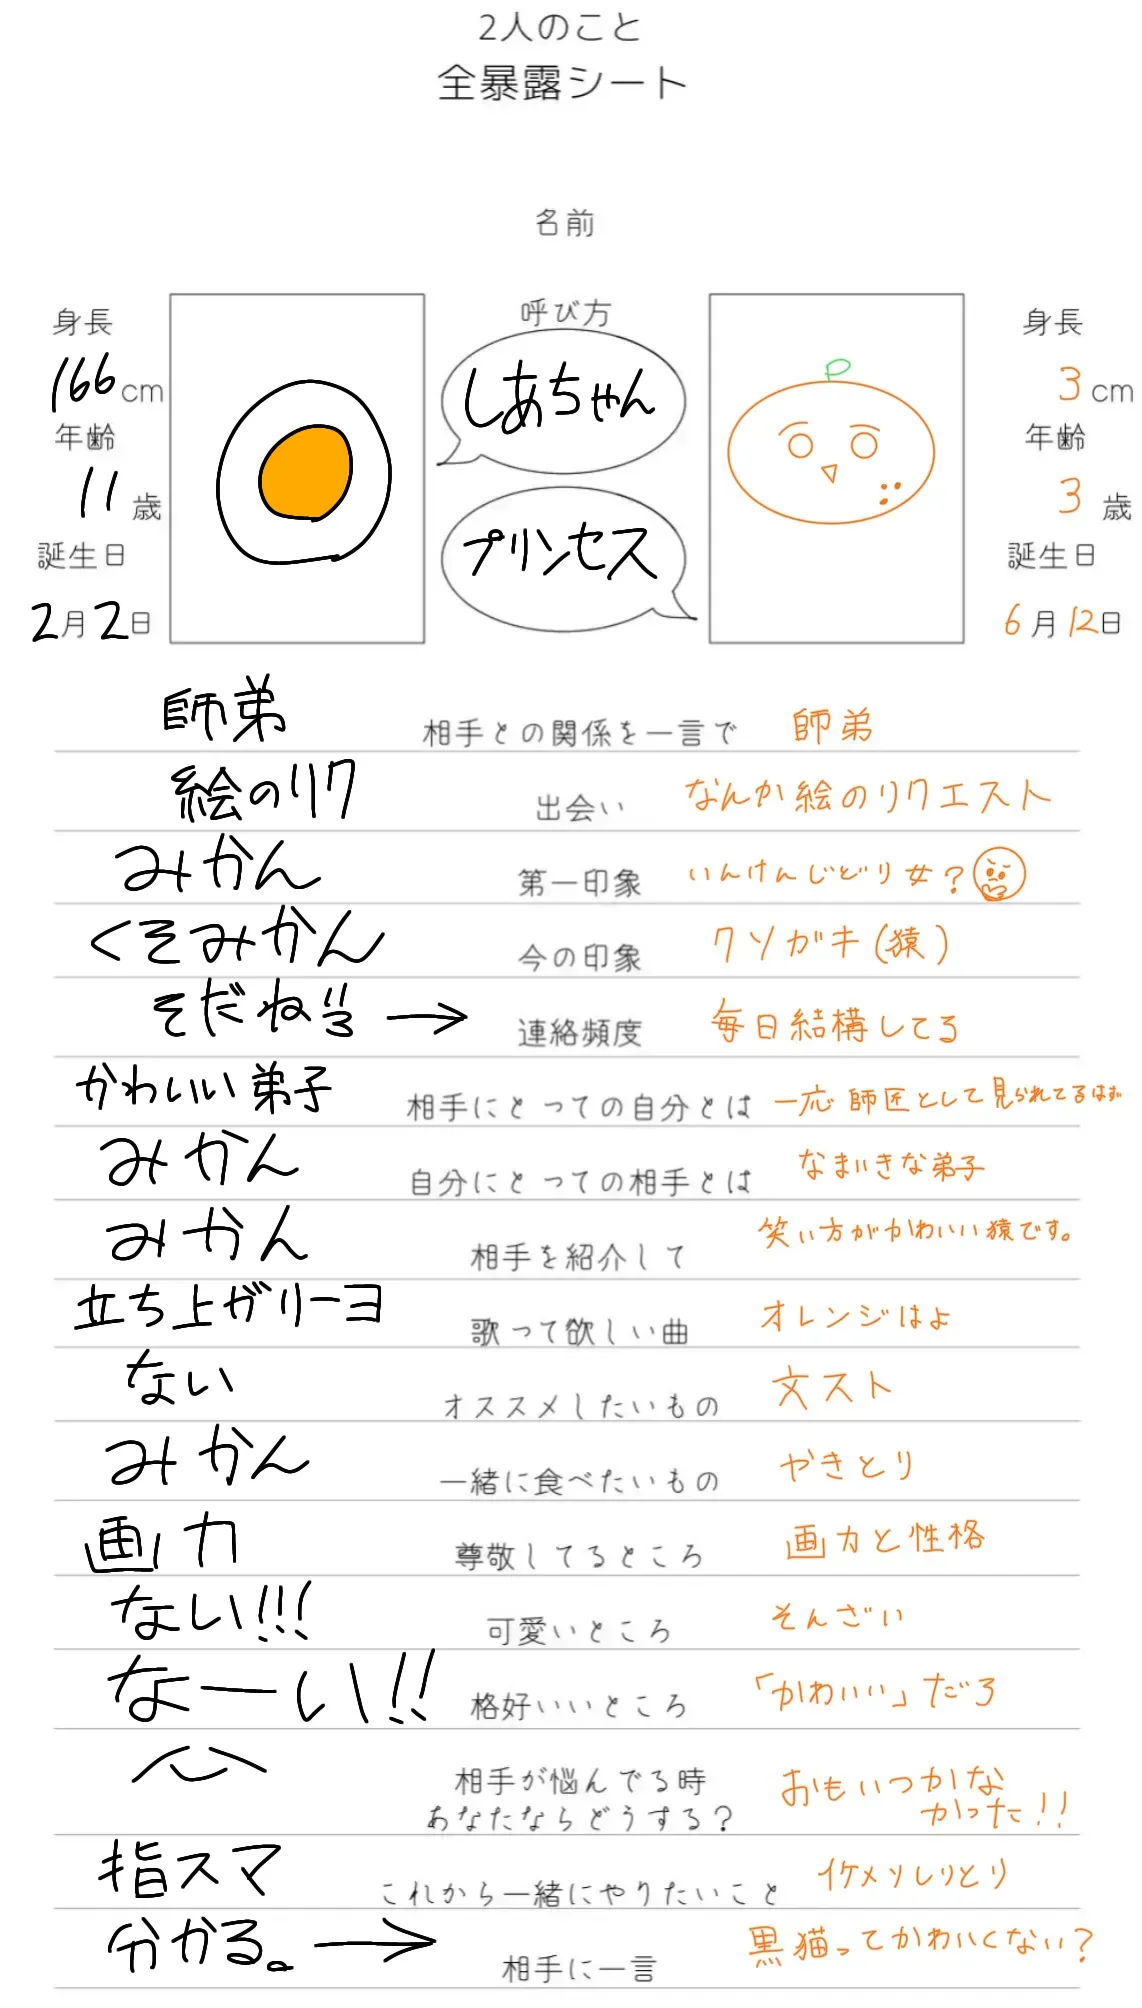 2人のこと
全暴露シート
名前
身長
166cm
年齢
11歳
誕生日
2月2日
呼び方
しあちゃん
プリンセス
身長
3cm
年齢
3歳
誕生日
6月12日
師弟 相手との関係を一言で 師弟
絵のリク 出会い なんか絵のリクエスト
みかん 第一印象 いんけんじどり女?
くそみかん 今の印象 クソガキ(猿)
そだね → 連絡頻度 毎日結構してる
かわいい弟子 相手にとっての自分とは 一応師匠として見られてるはず
みかん 自分にとっての相手とは なまいきな弟子
みかん 相手を紹介して 笑い方がかわいい猿です。
立ち上ガリーヨ 歌って欲しい曲 オレンジはよ
ない オススメしたいもの 文スト
みかん 一緒に食べたいもの やきとり
画力 尊敬してるところ 画力と性格
ない!!! 可愛いところ そんざい
なーい!! 格好いいところ 「かわいい」だろ
相手が悩んでる時
あなたならどうする? おもいつかな
かった!!
指スマ これから一緒にやりたいこと イケメンしりとり
分かる。→ 相手に一言 黒猫ってかわいくない?